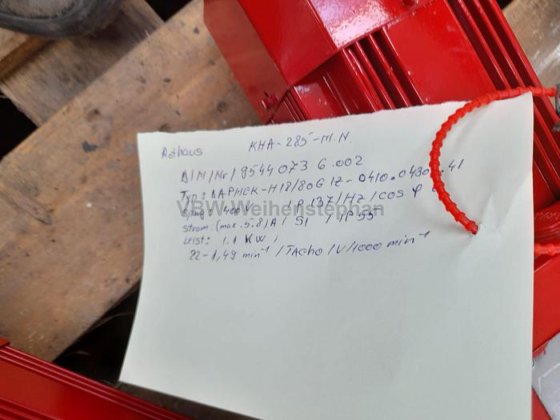 Rothaus KHA-285-M.N.
D/M/Nr/8544073 6.002
Typ: 1APHEK-H18/80G1Z-0410.0430.41
Spng: 400V / P 137/Hz/cos φ
VBW.Weihenstephan
Strom: (max. 5.8)A / S1 / IP 55
Leist: 1.1 KW /
22-1,49 min⁻¹ / Tacho / V/1000 min⁻¹